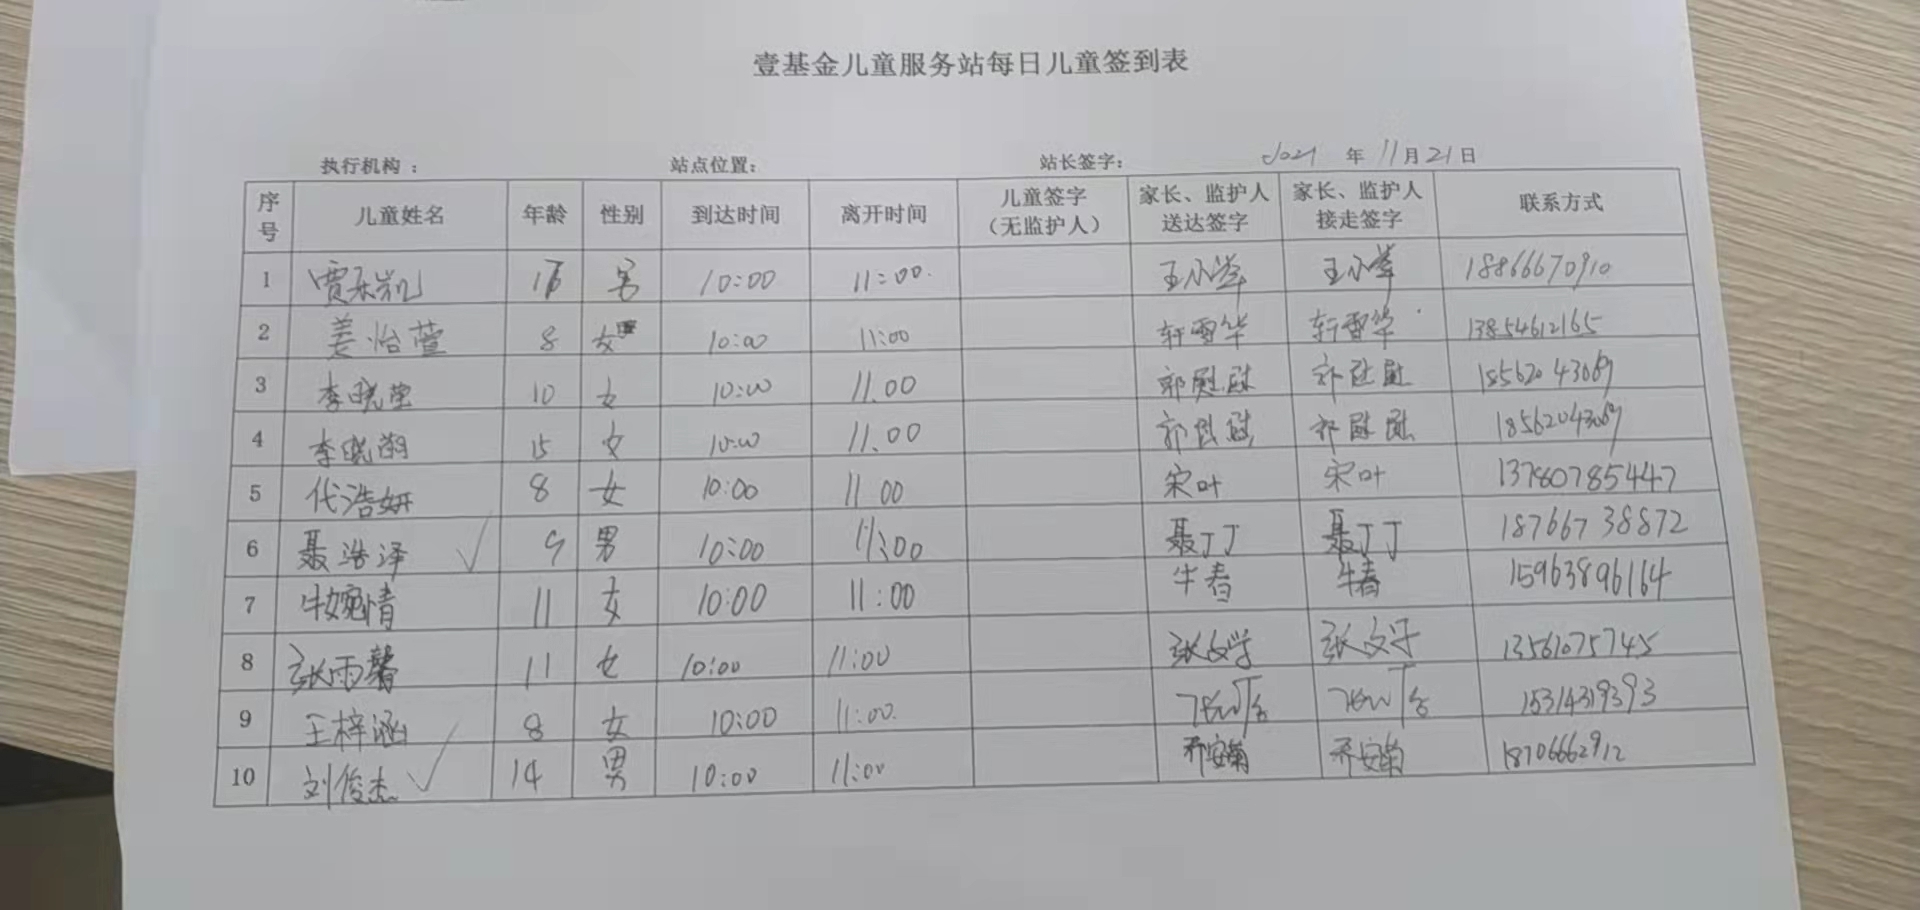 壹基金儿童服务站每日儿童签到表
执行机构： 站点位置： 站长签字： 2021 年 11月21日
序号 儿童姓名 年龄 性别 到达时间 离开时间 儿童签字（无监护人） 家长、监护人送达签字 家长、监护人接走签字 联系方式
1 贾东凯 男 10:00 11:00. 王小翠 王小翠 18866670910
2 姜怡萱 8 女 10:00 11:00 轩雪华 轩雪华 13854612165
3 李晓莹 10 女 10:00 11.00 郭慰慰 郭慰慰 18562043069
4 李晓 15 女 10:00 11.00 郭慰慰 郭慰慰 18562043069
5 代浩妍 8 女 10:00 11 00 宋叶 宋叶 13780785447
6 聂浩泽 ✓ 9 男 10:00 11:00 聂丁丁 聂丁丁 18766738872
7 牛婉情 11 女 10:00 11:00 牛春 牛春 15963896164
8 张雨馨 11 女 10:00 11:00 张文学 张文学 13561075745
9 王梓涵 8 女 10:00 11:00. 15314319393
10 刘俊杰 ✓ 14 男 10:00 11:00 乔安菊 乔安菊 18706662912